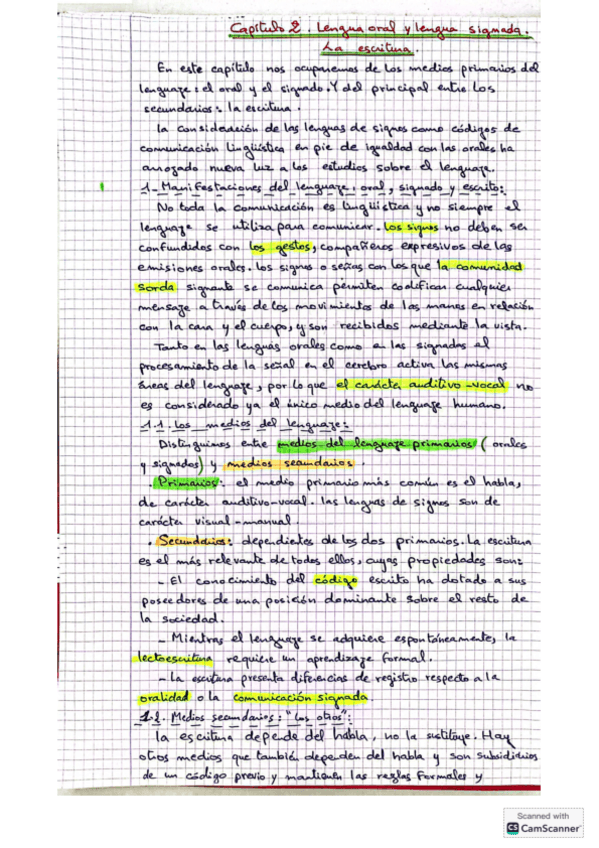 Capítulo 2. Lengua oral y lengua signada.
La escritura.
En este capítulo nos ocuparemos de los medios primarios del
lenguaje: el oral y el signado. Y del principal entre los
secundarios: la escritura.
La consideración de las lenguas de signos como códigos de
comunicación lingüística en pie de igualdad con las orales ha
arrojado nueva luz a los estudios sobre el lenguaje.
1- Manifestaciones del lenguaje: oral, signado y escrito:
No toda la comunicación es lingüística y no siempre el
lenguaje se utiliza para comunicar. Los signos no deben ser
confundidos con los gestos, compañeros expresivos de las
emisiones orales. Los signos o señas con los que la comunidad
sorda signante se comunica permiten codificar cualquier
mensaje a través de los movimientos de las manos en relación
con la cara y el cuerpo, y son recibidos mediante la vista.
Tanto en las lenguas orales como en las signadas el
procesamiento de la señal en el cerebro activa las mismas
áreas del lenguaje, por lo que el carácter auditivo-vocal no
es considerado ya el único medio del lenguaje humano.
1.1. Los medios del lenguaje:
Distinguimos entre medios del lenguaje primarios (orales
y signados) y medios secundarios.
. Primarios: el medio primario más común es el habla,
de carácter auditivo-vocal. Las lenguas de signos son de
carácter visual-manual.
. Secundarios: dependientes de los dos primarios. La escritura
es el más relevante de todos ellos, cuyas propiedades son:
- El conocimiento del código escrito ha dotado a sus
poseedores de una posición dominante sobre el resto de
la sociedad.
- Mientras el lenguaje se adquiere espontáneamente, la
lectoescritura requiere un aprendizaje formal.
- La escritura presenta diferencias de registro respecto a la
oralidad o la comunicación signada
1.2. Medios secundarios: "los otros":
La escritura depende del habla, no la sustituye. Hay
otros medios que también dependen del habla y son subsidiarios
de un código previo y mantienen las reglas formales y
Scanned with
CS CamScanner